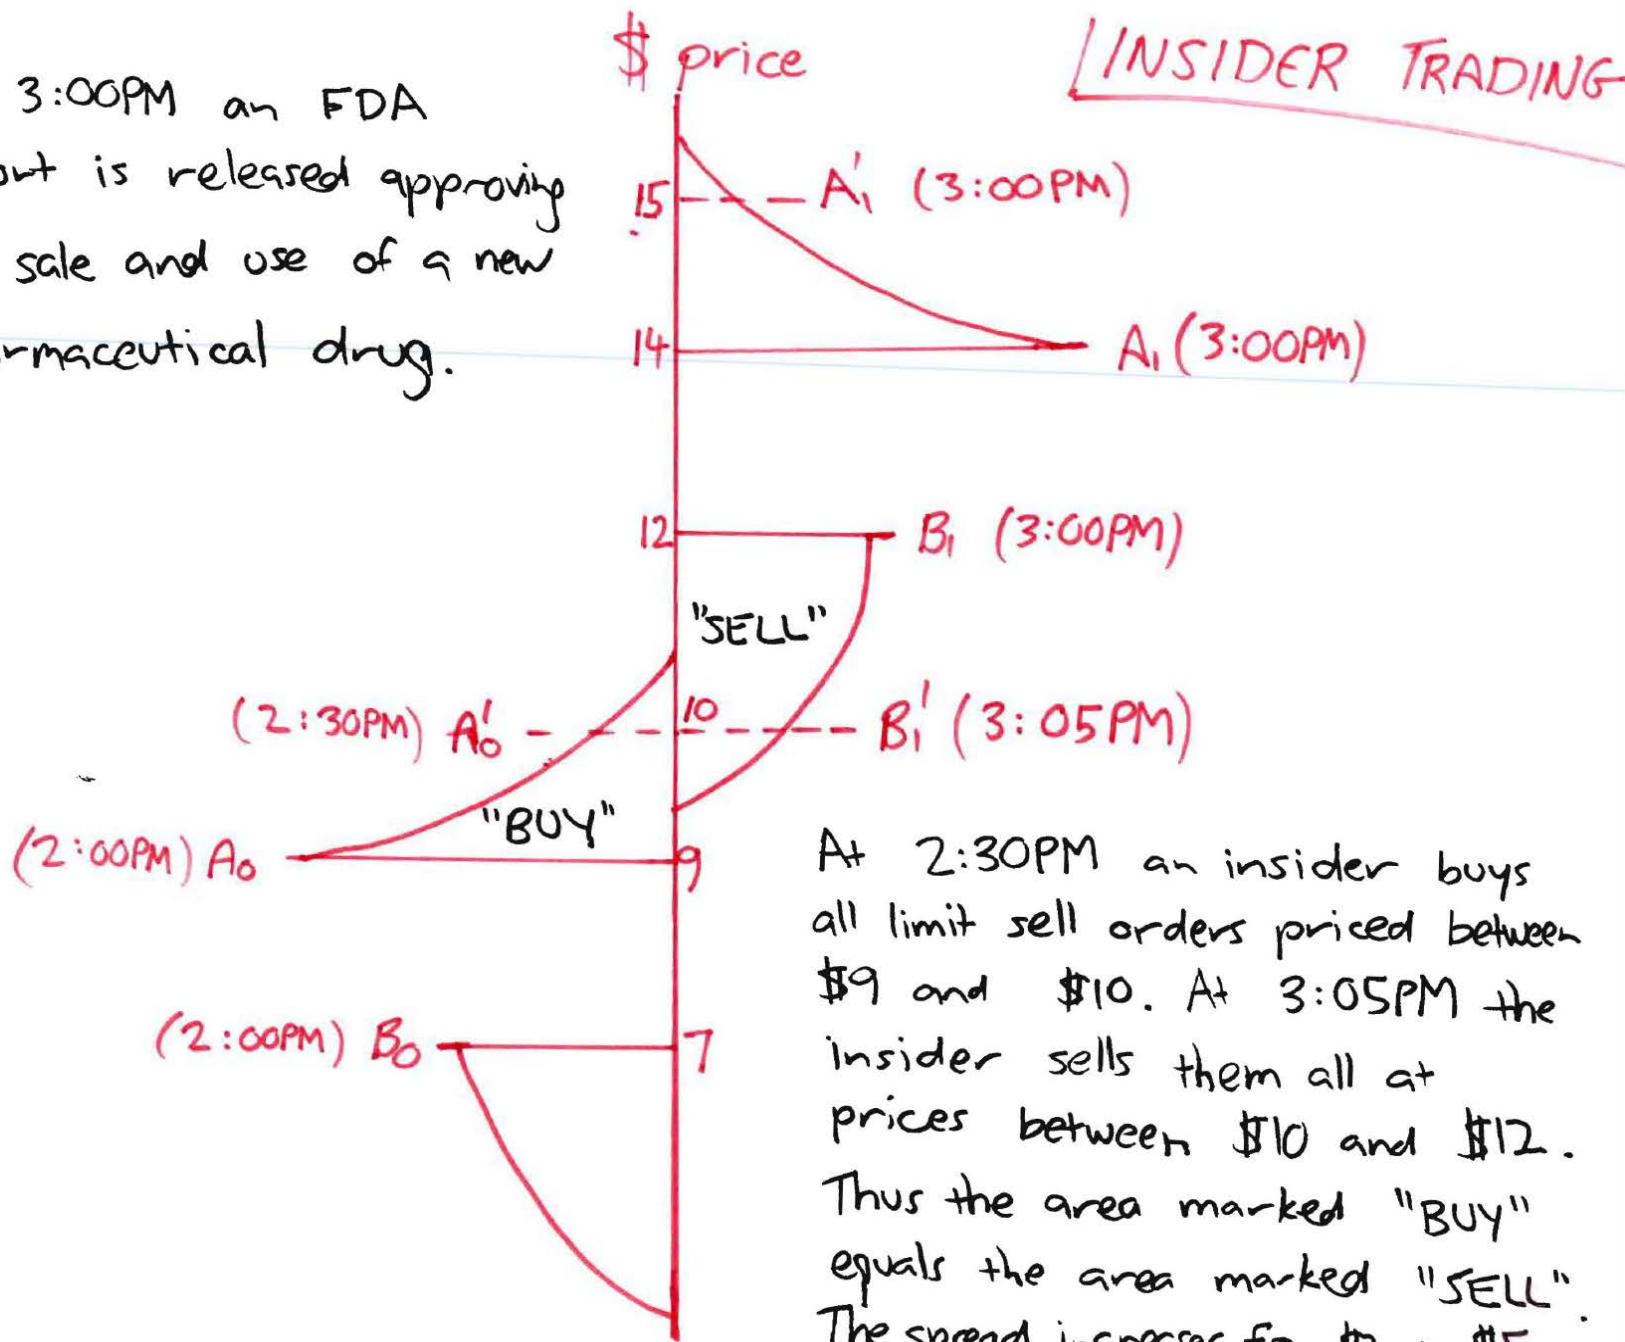 $ price
INSIDER TRADING
3:00PM an FDA
is released approving
sale and use of a new
drug.
15 A₁' (3:00PM)
14 A₁ (3:00PM)
12 B₁ (3:00PM)
"SELL"
(2:30PM) A₀' 10 B₁' (3:05PM)
"BUY"
(2:00PM) A₀ 9
(2:00PM) B₀ 7
At 2:30PM an insider buys
all limit sell orders priced between
$9 and $10. At 3:05PM the
insider sells them all at
prices between $10 and $12.
Thus the area marked "BUY"
equals the area marked "SELL".
The spread increases